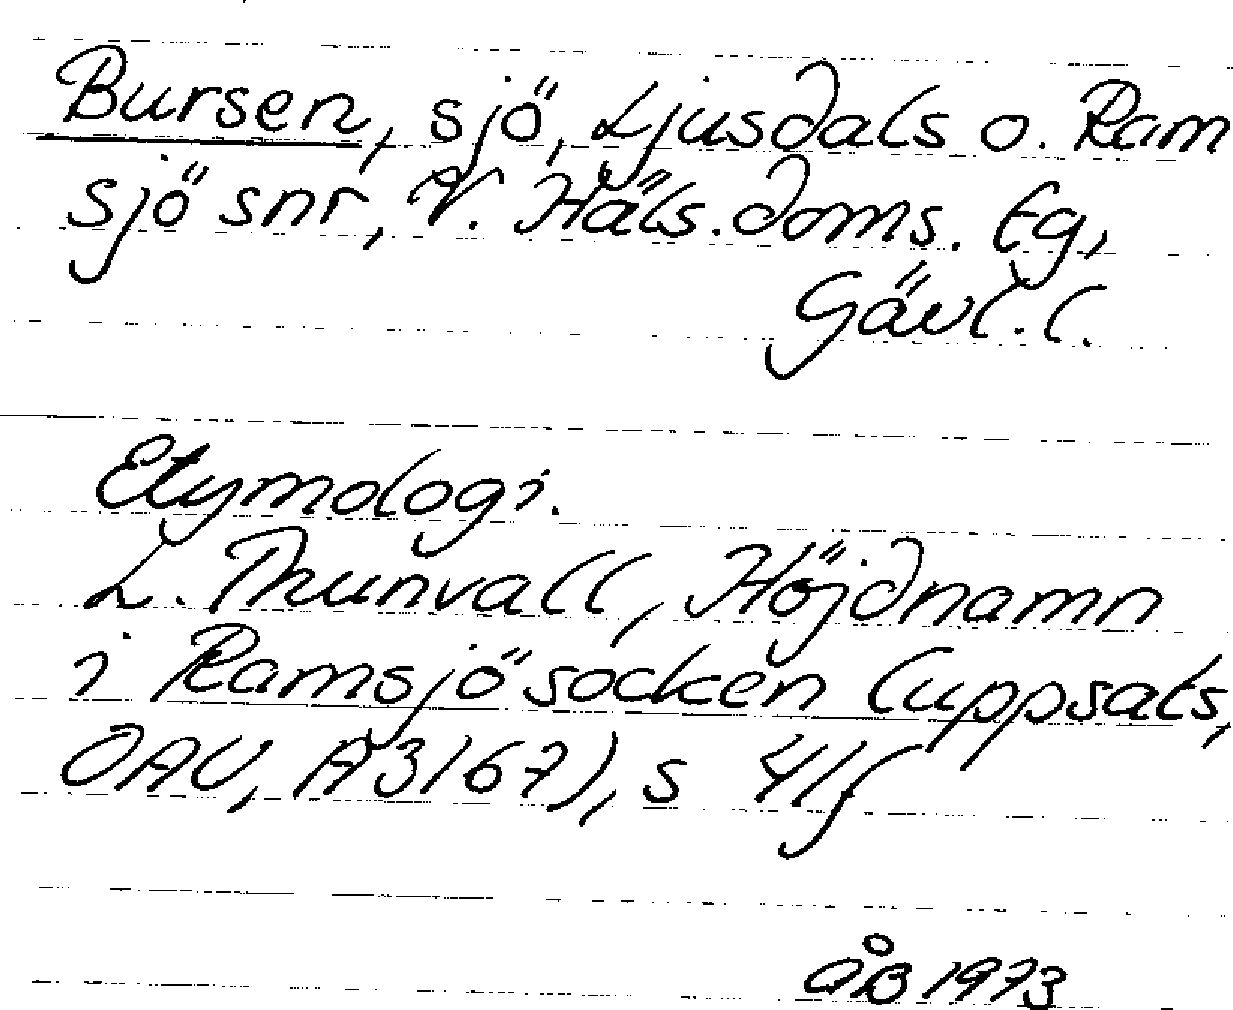 Bursen, sjö, Ljusdals o. Ram
sjö snr, V. Häls. doms. tg,
Gävl. l.
Etymologi.
L. Thunvall, Höjdnamn
i Ramsjö socken (uppsats,
OAU, A3167), s 41f
ÅB 1973